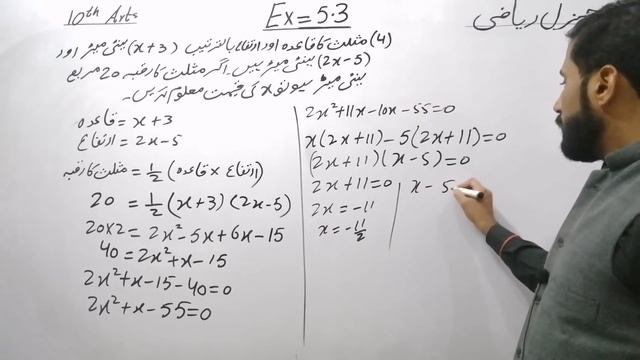 10th Arts
Ex = 5.3
جنرل ریاضی
(4) مثلث کا قاعدہ اور ارتفاع بالترتیب (x+3) سینٹی میٹر اور
(2x-5) سینٹی میٹر ہیں۔ اگر مثلث کا رقبہ 20 مربع
سینٹی میٹر ہو تو x کی قیمت معلوم کریں۔
قاعدہ = x+3
ارتفاع = 2x-5
مثلث کا رقبہ = 1/2 (ارتفاع × قاعدہ)
20 = 1/2 (x+3)(2x-5)
20×2 = 2x²-5x+6x-15
40 = 2x²+x-15
2x²+x-15-40=0
2x²+x-55=0
2x²+11x-10x-55=0
x(2x+11)-5(2x+11)=0
(2x+11)(x-5)=0
2x+11=0
2x=-11
x=-11/2
x-5